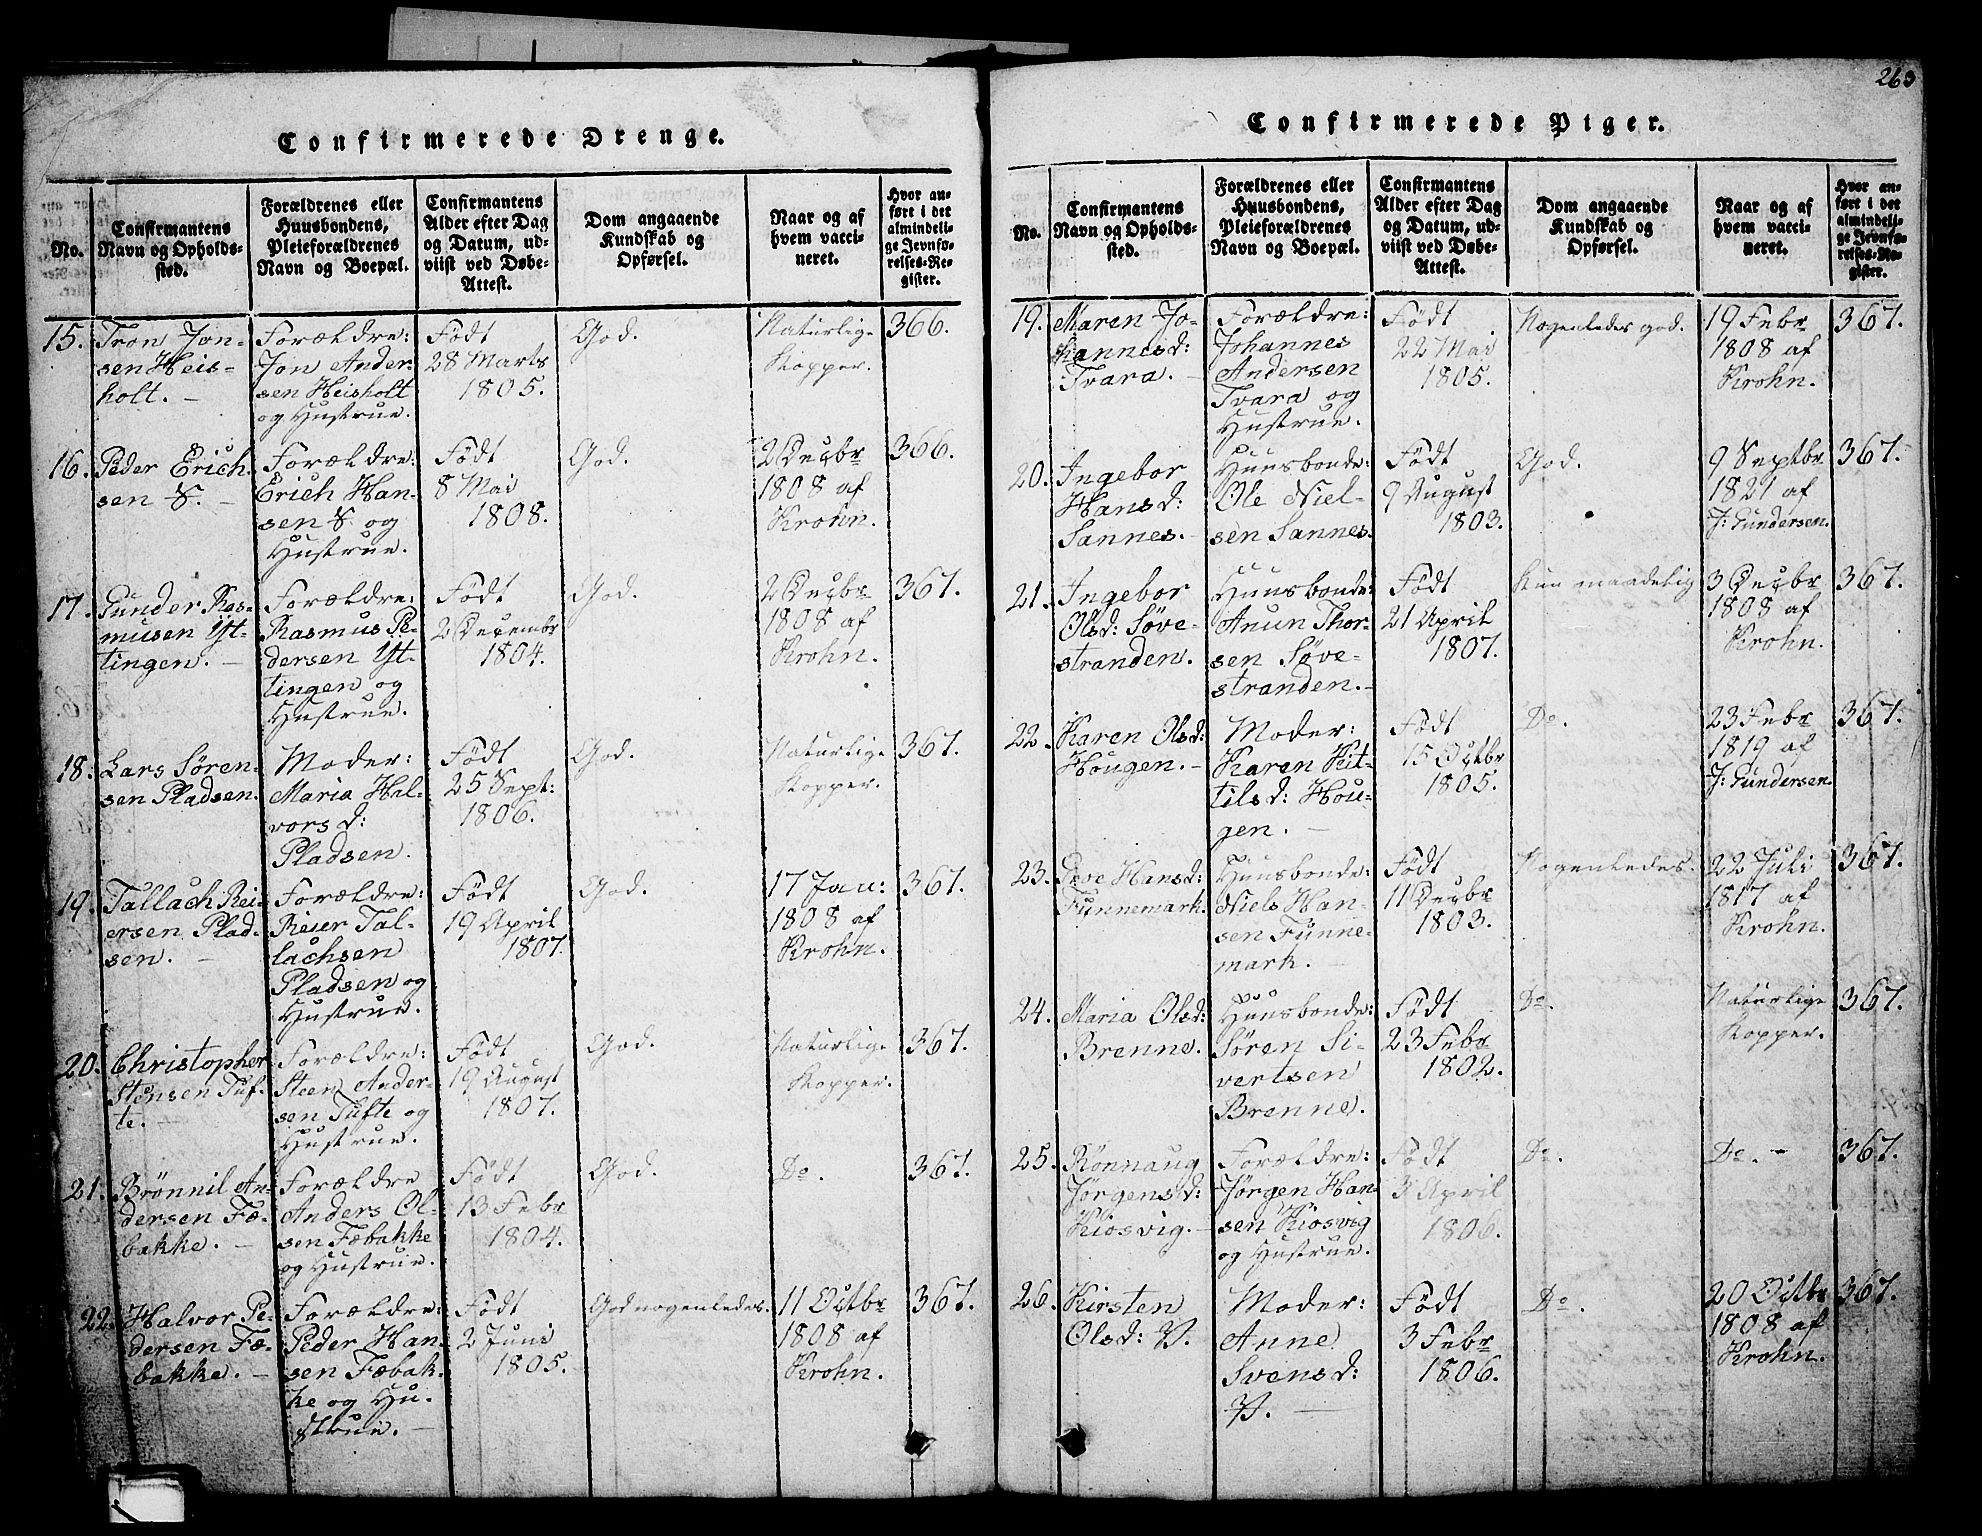 263
Confirmerede Drenge.
No.
Confirmantens
Navn og Opholds-
sted.
Forældrenes eller
Huusbondens,
Pleieforældrenes
Navn og Boepæl.
Confirmantens
Alder efter Dag
og Datum, ud-
viist ved Døbe-
Attest.
Dom angaaende
Kundskab og
Opførsel.
Naar og af
hvem vacci-
neret.
Hvor an-
ført i det
almindeli-
ge Jevnfø-
relses-Re-
gister.
15.
Tron Jon-
sen Heis-
holt. -
Forældre:
Jon Ander-
sen Heisholt
og Hustrue.
Født
28 Marts
1805.
God.
Naturlige
Kopper.
366.
16.
Peder Erich-
sen S. -
Forældre:
Erich Han-
sen S. og
Hustrue.
Født
8 Mai
1808.
God.
2 Decbr
1808 af
Krohn.
366.
17.
Gunder Ras-
musen Yt-
tingen. -
Forældre:
Rasmus Pe-
dersen Yt-
tingen og
Hustrue.
Født
2 Decembr
1804.
God.
2 Decbr
1808 af
Krohn.
367.
18.
Lars Søren-
sen Pladsen.
Moder:
Maria Hal-
vorsd:
Pladsen.
Født
25 Sept:
1806.
God.
Naturlige
Kopper.
367.
19.
Tallach Rei-
ersen Plad-
sen. -
Forældre:
Reier Tal-
lachsen
Pladsen og
Hustrue.
Født
19 April
1807.
God.
17 Jan:
1808 af
Krohn.
367.
20.
Christopher
Stensen Tuf-
te. -
Forældre:
Steen Ander-
sen Tufte og
Hustrue.
Født
19 August
1807.
God.
Naturlige
Kopper.
367.
21.
Brønnil An-
dersen Fæ-
bakke. -
Forældre
Anders Ol-
sen Fæbakke
og Hustrue.
Født
13 Febr
1804.
God.
Do.
367.
22.
Halvor Pe-
dersen Fæ-
bakke. -
Forældre:
Peder Han-
sen Fæbak-
ke og Hu-
strue. -
Født
2 Juni
1805.
God nogenledes.
11 Octbr
1808 af
Krohn.
367.
Confirmerede Piger.
No.
Confirmantens
Navn og Opholds-
sted.
Forældrenes eller
Huusbondens,
Pleieforældrenes
Navn og Boepæl.
Confirmantens
Alder efter Dag
og Datum, ud-
viist ved Døbe-
Attest.
Dom angaaende
Kundskab og
Opførsel.
Naar og af
hvem vacci-
neret.
Hvor an-
ført i det
almindeli-
ge Jevnfø-
relses-Re-
gister.
19.
Maren Jo-
hannesd:
Tvara. -
Forældre:
Johannes
Andersen
Tvara og
Hustrue.
Født
22 Mai
1805.
Nogenledes god.
19 Febr
1808 af
Krohn.
367.
20.
Ingebor
Hansd:
Sannes. -
Huusbonde:
Ole Niel-
sen Sannes.
Født
9 August
1803.
God.
9 Septbr
1821 af
J: Gundersen.
367.
21.
Ingebor
Olsd: Søve-
stranden.
Huusbonde:
Anun Thor-
sen Søve-
stranden. -
Født
21 April
1807.
Kun maadelig
3 Decbr
1808 af
Krohn.
367.
22.
Karen Olsd:
Hougen. -
Moder:
Karen Kit-
tilsd: Hou-
gen. -
Født
15 Octbr
1805.
Do.
23 Febr
1819 af
J: Gundersen.
367.
23.
Hansd:
Funnemark.
Huusbonde:
Niels Han-
sen Funne-
mark. -
Født
11 Decbr
1803.
Nogenledes.
22 Juli
1817 af
Krohn.
367.
24.
Maria Olsd:
Brenne.
Huusbonde:
Søren Si-
vertsen
Brenne.
Født
23 Febr
1802.
Do.
Naturlige
Kopper.
367.
25.
Rønnaug
Jørgensd:
Kiosvig. -
Forældre:
Jørgen Han-
sen Kiosvig
og Hustrue.
Født
3 April
1806.
Do.
Do. -
367.
26.
Kirsten
Olsd: V.
Moder:
Anne
Svensd:
V. -
Født
3 Febr
1806.
Do.
20 Octbr
1808 af
Krohn.
367.